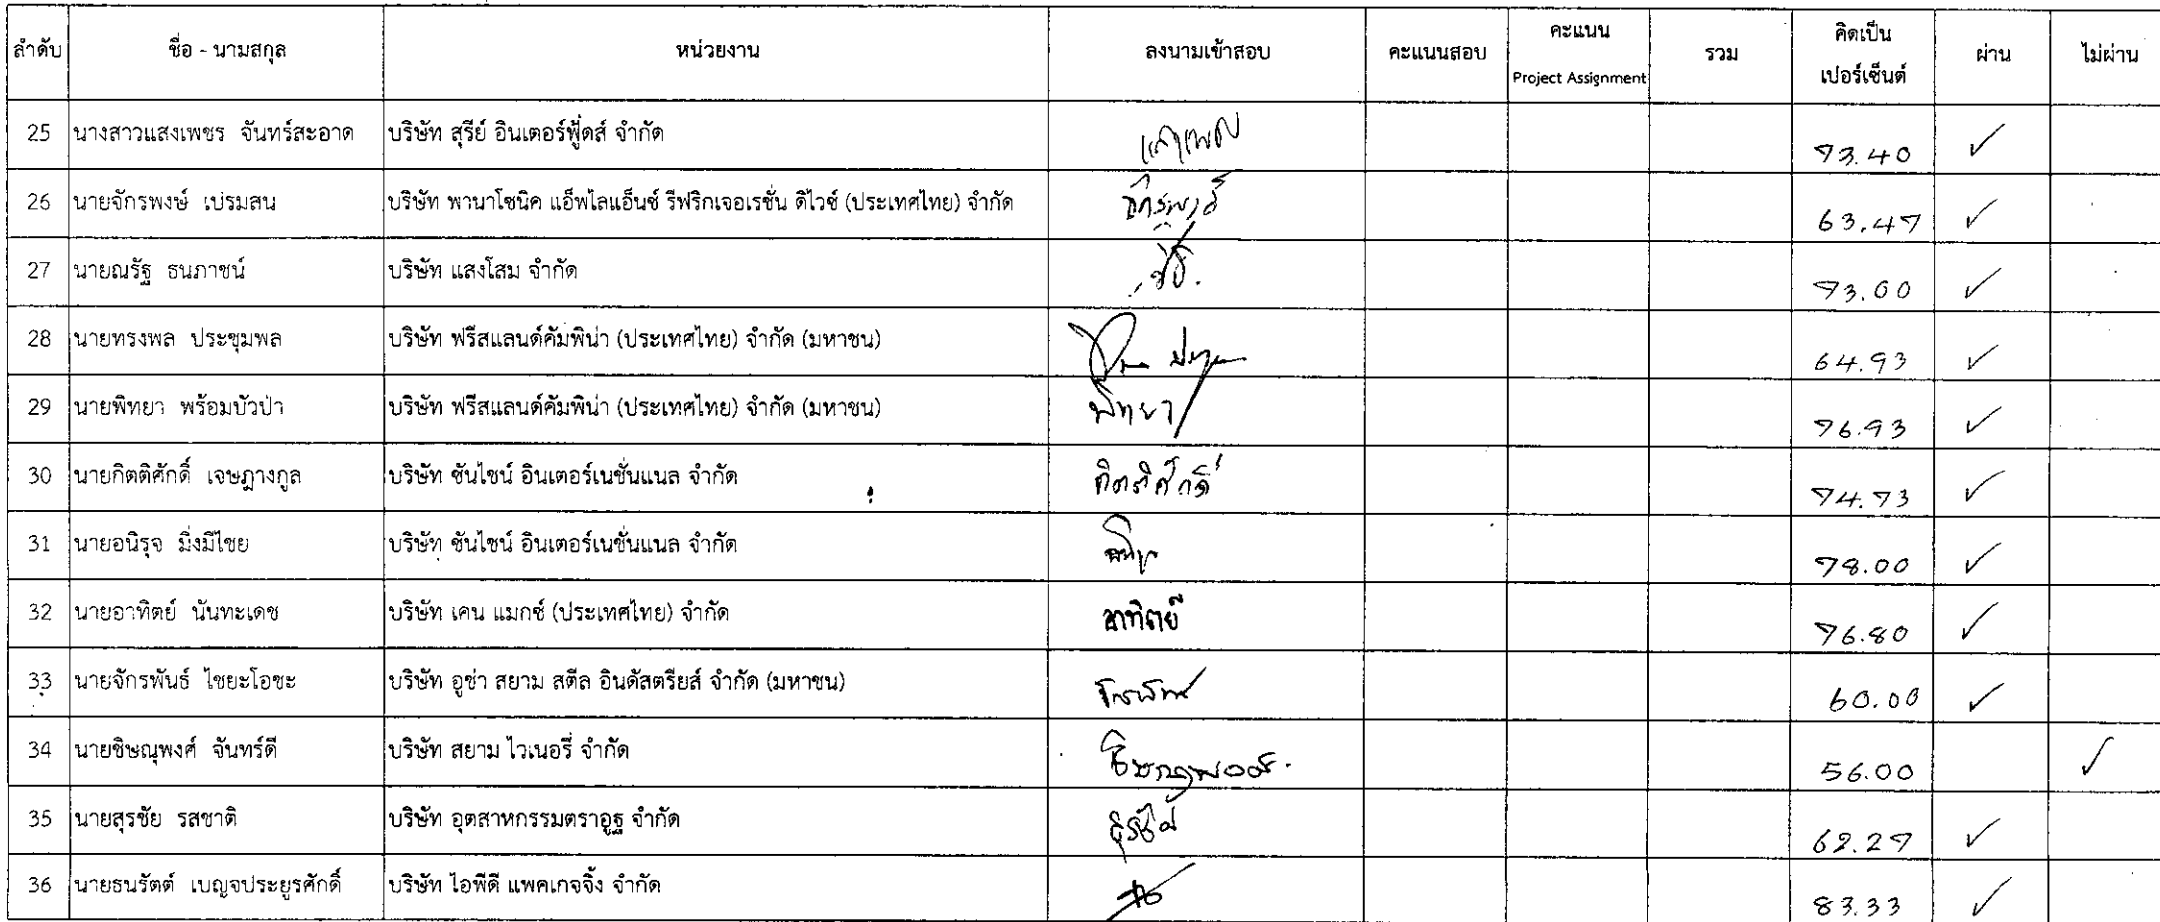 ลำดับ ชื่อ - นามสกุล หน่วยงาน ลงนามเข้าสอบ คะแนนสอบ คะแนน Project Assignment รวม คิดเป็น เปอร์เซ็นต์ ผ่าน ไม่ผ่าน
25 นางสาวแสงเพชร จันทร์สะอาด บริษัท สุรีย์ อินเตอร์ฟู้ดส์ จำกัด แสงเพชร 73.40 ✓
26 นายจักรพงษ์ เปรมสน บริษัท พานาโซนิค แอ็พไลแอ็นซ์ รีฟริกเจอเรชั่น ดิไวซ์ (ประเทศไทย) จำกัด จักรพงษ์ 63.47 ✓
27 นายณรัฐ ธนภาชน์ บริษัท แสงโสม จำกัด 73.00 ✓
28 นายทรงพล ประชุมพล บริษัท ฟรีสแลนด์คัมพิน่า (ประเทศไทย) จำกัด (มหาชน) 64.93 ✓
29 นายพิทยา พร้อมบัวป่า บริษัท ฟรีสแลนด์คัมพิน่า (ประเทศไทย) จำกัด (มหาชน) พิทยา 76.93 ✓
30 นายกิตติศักดิ์ เจษฎางกูล บริษัท ซันไชน์ อินเตอร์เนชั่นแนล จำกัด กิตติศักดิ์ 74.73 ✓
31 นายอนิรุจ มิ่งมีไชย บริษัท ซันไชน์ อินเตอร์เนชั่นแนล จำกัด 78.00 ✓
32 นายอาทิตย์ นันทะเดช บริษัท เคน แมกซ์ (ประเทศไทย) จำกัด อาทิตย์ 76.80 ✓
33 นายจักรพันธ์ ไชยะโอชะ บริษัท อูซ่า สยาม สตีล อินดัสตรียส์ จำกัด (มหาชน) จักรพันธ์ 60.00 ✓
34 นายชิษณุพงศ์ จันทร์ดี บริษัท สยาม ไวเนอรี่ จำกัด ชิษณุพงศ์ 56.00 ✓
35 นายสุรชัย รสชาติ บริษัท อุตสาหกรรมตราอูฐ จำกัด สุรชัย 62.27 ✓
36 นายธนรัตต์ เบญจประยูรศักดิ์ บริษัท ไอพีดี แพคเกจจิ้ง จำกัด 83.33 ✓